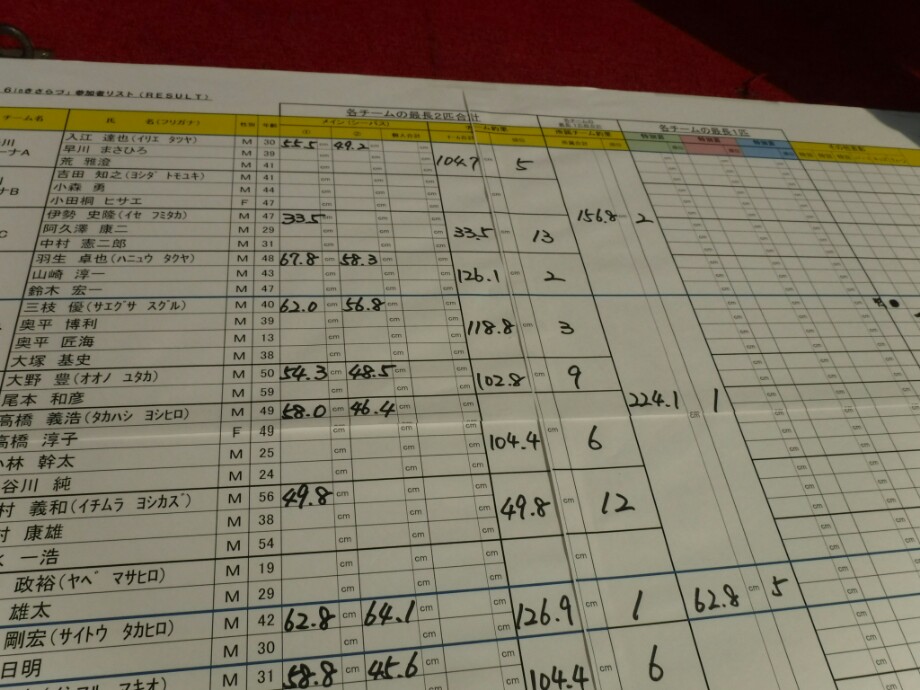 Ginきさらづ」参加者リスト(RESULT)
各チームの最長2匹合計
チーム名 氏 名(フリガナ) 性別 年齢 メイン(シーバス) チーム釣果 各チームの最長1匹
① ② 個人合計
入江 達也(イリエ タツヤ) M 30 55.5 cm 49.2 cm
早川 まさひろ M 39
荒 雅澄 M 41 104.7 cm 5
吉田 知之(ヨシダ トモユキ) M 41
小森 勇 M 44
小田桐 ヒサエ F 47
伊勢 史隆(イセ フミタカ) M 47 33.5 156.8 cm 2
阿久澤 康二 M 29 33.5 cm 13
中村 憲二郎 M 31
羽生 卓也(ハニュウ タクヤ) M 48 67.8 cm 58.3 cm
山崎 淳一 M 43 126.1 cm 2
鈴木 宏一 M 47
三枝 優(サエグサ スグル) M 40 62.0 cm 56.8 cm
奥平 博利 M 39 118.8 cm 3
奥平 匠海 M 13
大塚 基史 M 38
大野 豊(オオノ ユタカ) M 50 54.3 cm 48.5 cm 102.8 cm 9
尾本 和彦 M 59 224.1 cm 1
高橋 義浩(タカハシ ヨシヒロ) M 49 58.0 cm 46.4 cm
高橋 淳子 F 49 104.4 cm 6
林 幹太 M 25
谷川 純 M 24
村 義和(イチムラ ヨシカズ) M 56 49.8 cm 49.8 cm 12
村 康雄 M 38
一浩 M 54
政裕(ヤベ マサヒロ) M 19
雄太 M 29 62.8 cm 5
剛宏(サイトウ タカヒロ) M 42 62.8 cm 64.1 cm 126.9 cm 1
日明 M 30
M 31 58.8 cm 45.6 cm 104.4 cm 6